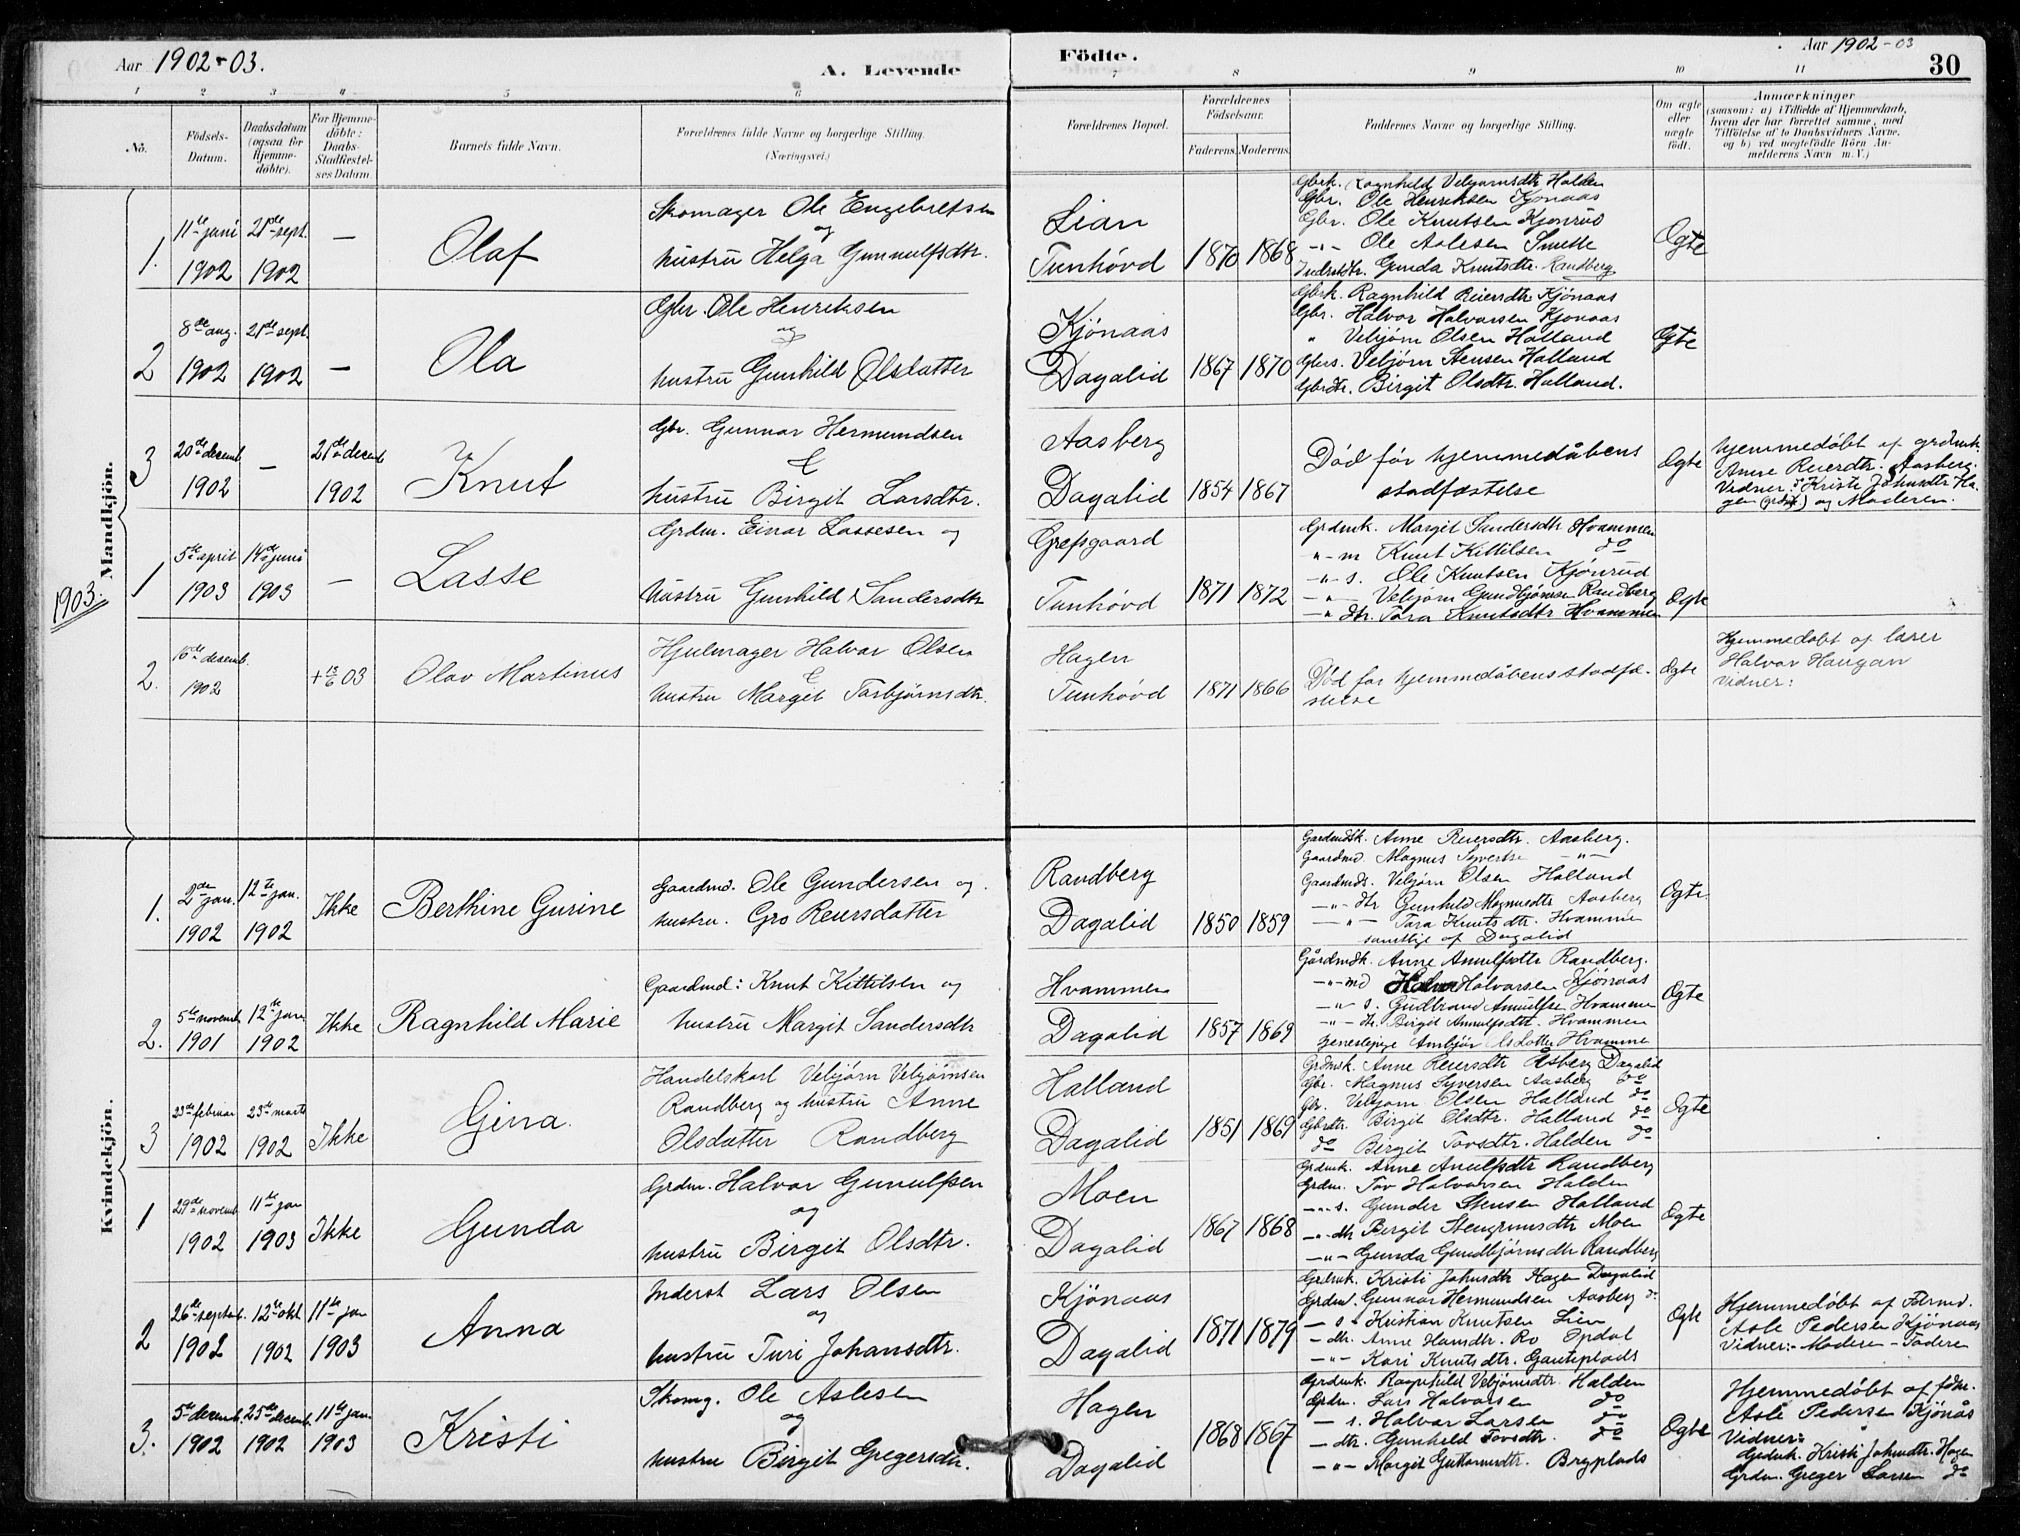 Aar 1902-03.
A. Levende
Födte.
Aar 1902-03
30
1 2 3 4 5 6 7 8 9 10 11
Nô.
Födsels-Datum.
Daabsdatum (ogsaa for Hjemme-döbte).
For Hjemme-döbte: Daabs-Stadfæstel-ses Datum.
Barnets fulde Navn.
Forældrenes fulde Navne og borgerlige Stilling.
(Næringsvei.)
Forældrenes Bopæl.
Forældrenes Födselsaar.
Faderens. Moderens.
Faddernes Navne og borgerlige Stilling.
Om ægte eller uægte födt.
Anmærkninger
(saasom: a) i Tilfælde af Hjemmedaab,
hvem der har forrettet samme, med
Tilföielse af to Daabsvidners Navne.
og b) ved uægtefödte Börn An-
melderens Navn m. V.)
Mandkjön.
1. 11te juni 1902 21de sept. 1902 — Olaf
Skomager Ole Engebretsen
og
hustru Helga Gunnulfsdtr.
Lian
Tunhövd
1870 1868
Gbrk. Ragnhild Vebjørnsdtr Halden
Gbr. Ole Henriksen Kjönaas
Gbr. Ole Knutsen Kjönrud
-"- Ole Aslesen Smette
Inderstdtr. Gunda Knutsdtr. Randberg
Ægte
2 8de aug. 1902 21de sept. 1902 — Ola
Gbr. Ole Henriksen
og
hustru Gunhild Olsdatter
Kjönaas
Dagalid
1867 1870
Gbrk. Ragnhild Reiersdtr Kjönaas
Gbr. Halvor Halvorsen Kjonaas
" Vebjörn Olsen Halland
Gbrs. Vebjörn Stensen Halland
Gbrdtr. Birgit Olsdtr. Halland.
Ægte
3 20de decemb 1902 — 21de decemb 1902 Knut
Gbr. Gunnar Hermundsen
&
hustru Birgit Larsdtr.
Aasberg
Dagalid
1854 1867
Död för hjemmedåbens
stadfæstelse
Ægte
hjemmedöbt af grdmk.
Anne Reierdtr. Aasberg.
Vidner: Kristi Johnsdtr Ha-
gen (grdk) og Moderen.
1903.
1 5te april 1903 14de juni 1903 — Lasse
Grdm. Einar Lassesen og
hustru Gunhild Sandersdtr
Grefsgaard
Tunhövd
1871 1872
Grdmk. Margit Sandersdtr Hvammen
"-m Knut Kittilsen do
-"-s. Ole Knutsen Kjönrud
-"- Vebjörn Gundbjörnsen Randberg
-"dtr. Tora Knutsdtr Hvammen
Ægte
2. 16de desemb. 1902 + 15/6 03 Olav Martinus
Hjulmager Halvar Olsen
&
hustru Margit Torbjörnsdtr.
Hagen
Tunhövd
1871 1866
Död for hjemmedåbens stadfæ-
stelse
Ægte
Hjemmedöbt af lærer
Halvar Haugan
Vidner:
Kvindekjön.
1. 2den jan. 1902 12te jan. 1902 Ikke Berthine Gurine
Gaardmd. Ole Gundersen og
hustru. Gro Reiersdatter
Randberg
Dagalid
1850 1859
Gardmdsk. Anne Reiersdtr. Aasberg.
Gaardmd. Magnus Syverts -"-
Gaardmds. Vebjörn Olsen Halland
-"- dtr Gunhild Magnusdtr Aasberg
-"- Tora Knutsdtr. Hvamme
samtlige af Dagalid
Ægte
2. 5te novemb 1901 12te jan. 1902 Ikke Ragnhild Marie
Gaardmd: Knut Kittilsen og
hustru Margit Sandersdtr
Hvammen
Dagalid
1857 1869
Gårdmdk. Anne Arnulfsdtr Randberg.
-"-md Halvor Halvarsen Kjönaas
-"- s. Gudbrand Arnulfsen Hvammen
-"- dtr. Birgit Arnulfsdtr. Hvammen
Tjenestepige Ambjör Olsdatter Hvamme
Ægte
3 23de februar 1902 23de marts 1902 Ikke Gina.
Handelskarl Vebjörn Vebjörnsen
Randberg og hustru Anne
Olsdatter Randberg
Halland
Dagalid
1851 1869
Grdmsk. Anne Reiersdtr Åsberg Dagalid
Gbr. Magnus Syversen Aasberg do
Gbr. Vebjorn Olsen Halland do
Gbrdtr. Birgit Olsdtr. Halland do
do Birgit Tovsdtr. Halden do
Ægte
1 29de novemb 1902 11te jan 1903 Ikke Gunda
Grdm. Halvor Gunulfsen
og
hustru Birgit Olsdtr.
Moen
Dagalid
1867 1868
Grdmk. Anne Anulfsdtr Randberg
Grdm. Tov Halvorsen Halden
-"-s. Gunder Stensen Halland
-"-dtr Birgit Stengrimsdtr Moen
-"- Gunda Gundbjörnsdtr Randberg
Ægte
2 26de septemb. 1902 12te okt 1902 11te jan 1903 Anna
Inderst Lars Olsen
og
hustru Turi Johansdtr.
Kjönaas
Dagalid
1871 1879
Grdmk. Kristi Johnsdtr Hagen Dagalid
Grdm. Gunnar Hermundsen Aasberg do
— s - Kristian Knutsen Lien
— dtr. Anne Hansdtr. Ro Opdal
—"- Kari Knutsdtr. Gauteplads
Ægte
Hjemmedöbt af Formd.
Asle Pedersen Kjönaas
Vidner:- Moderen - Faderen
3. 5te decemb. 1902 25de decemb. 1902 11te jan. 1903 Kristi
Skomg. Ole Aslesen
og
hustru Birgit Gregersdtr.
Hagen
Dagalid
1868 1867
Grdmk. Ragnhild Vebjörnsdtr. Halden
Grdm. Lars Halvorsen do
— s. Halvar Larsen do
— dtr. Gunhild Tovsdtr. do
—"- Margit Guttormsdtr. Bryplads
Ægte
Hjemmedöbt af fdm.
Asle Pedersen Kjönås
Vidner:
Grdmk. Kristi Johnsdtr. Hagen
Grdm. Greger Larsen do